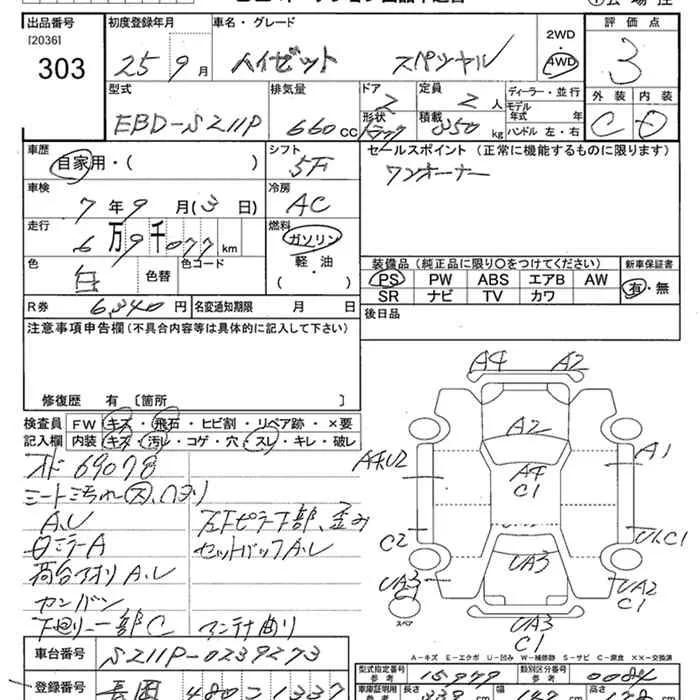 出品番号
[2036]
303
初度登録年月
25 9月
車名・グレード
ハイゼット スペシャル
2WD
4WD
評価点
3
外装 内装
C D
型式
EBD-S211P
排気量
660cc
ドア 2
形状 トラック
定員
2人
積載 350kg
ディーラー・並行
モデル
年式 年
ハンドル 左・右
車歴
自家用・( )
シフト
5F
セールスポイント (正常に機能するものに限ります)
ワンオーナー
車検
7年9月(3日)
冷房
AC
走行
6万9千077km
燃料
ガソリン
軽・油
( )
色
白
色替
色コード
装備品(純正品に限り○をつけてください)
PS PW ABS エアB AW
SR ナビ TV カワ
新車保証書
有・無
R券 6,340円
名変通知期限 月 日
後日品
注意事項申告欄(不具合内容等は具体的に記入して下さい)
修復歴 有 [箇所 ]
検査員
記入欄
FW キズ・飛石・ヒビ割・リペア跡・×要
内装 キズ・汚れ・コゲ・穴・スレ・キレ・破レ
69078
A.U
ミラーA
荷台アオリA.U
カンバン
下廻り一部C
左Fピラー下部、歪み
セットバックA.U
アンテナ曲り
A4 A2
A2
A4
C1
A4U2
A1
C2
U1.C1
UA3
C1
UA3
UA2
C1
UA3
C1
スペア
A-キズ E-エクボ U-凹み W-補修跡 S-サビ C-腐食 ××-交換済
車台番号
S211P-0239273
型式指定番号
参考
15979
類別区分番号
参考
0084
登録番号
長岡 480 1337
長さ 339cm
幅